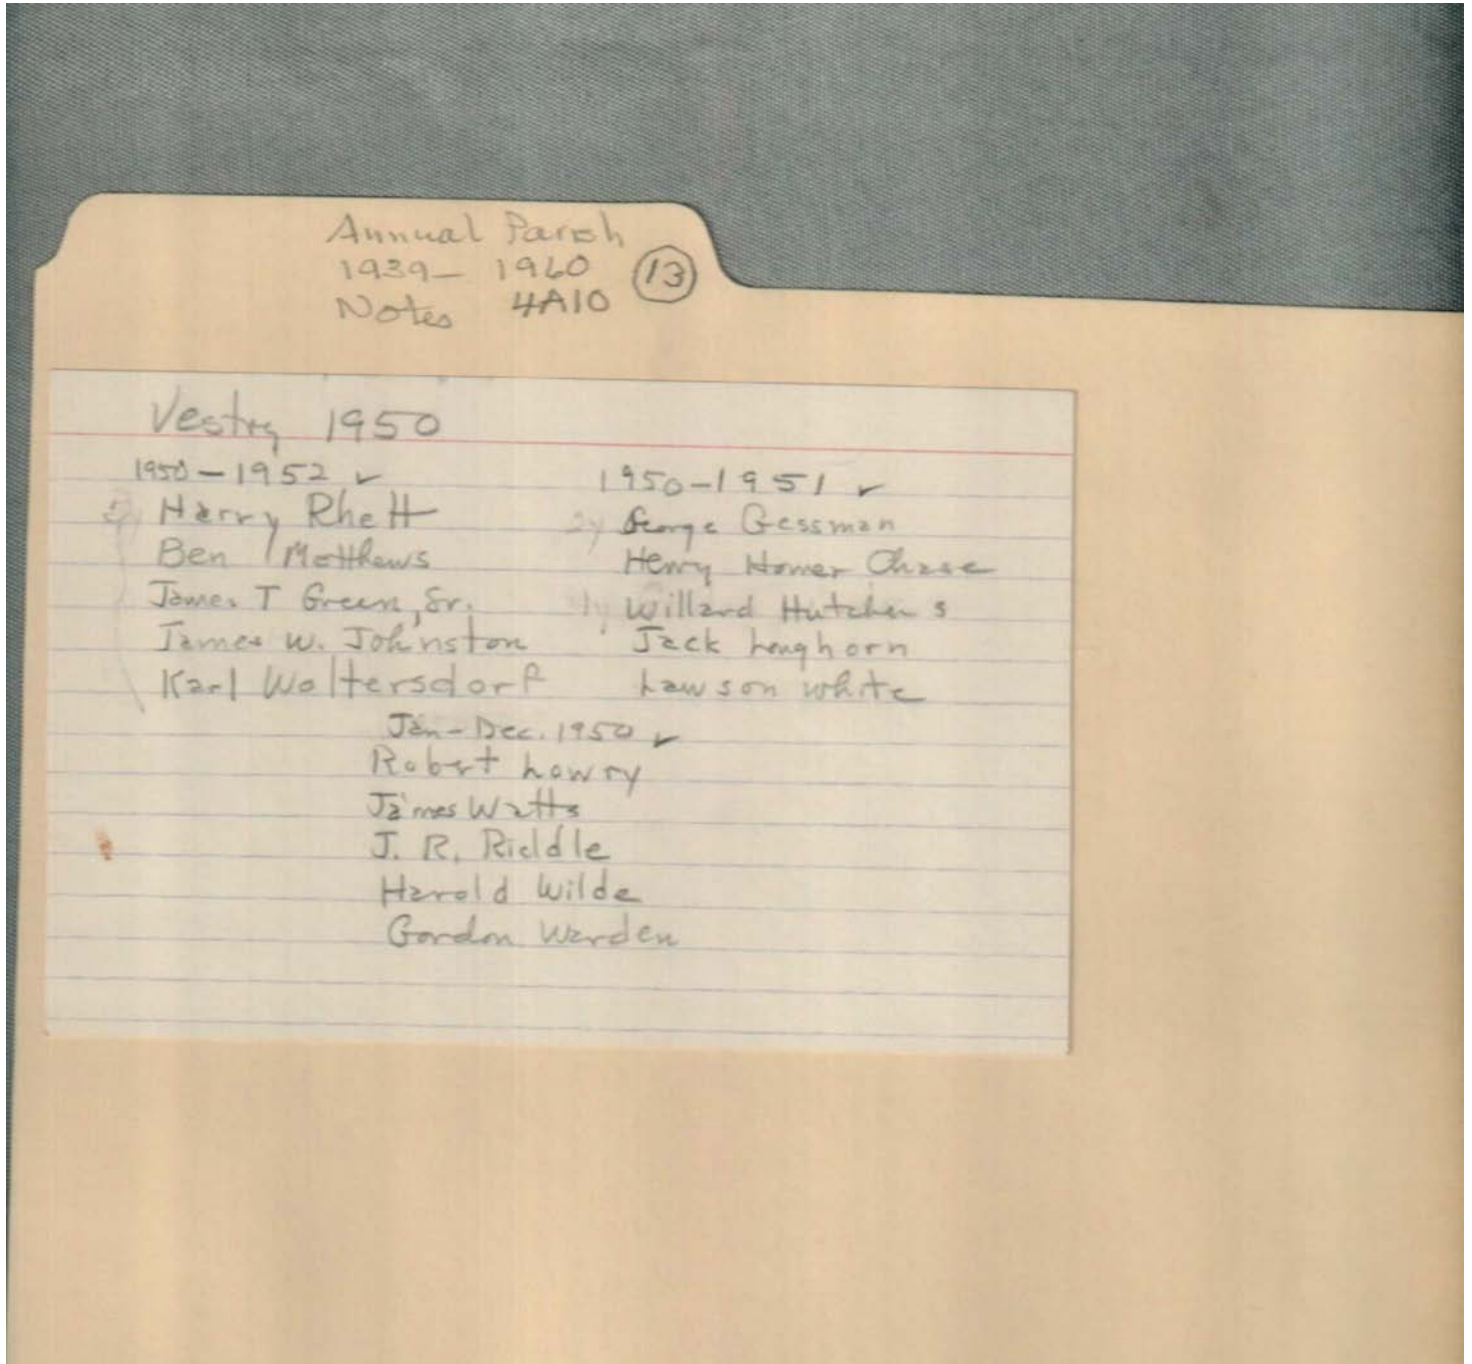 Annual Parish
1939– 1960 13
Notes 4A10
Vestry 1950
1950–1952 ✓
Harry Rhett
Ben Matthews
James T Green, Sr.
James W. Johnston
Karl Woltersdorf
1950–1951 ✓
2y George Gessman
Henry Homer Chase
1y Willard Hutchens
Jack Longhorn
Lawson White
Jan–Dec. 1950 ✓
Robert Lowry
James Watts
J. R. Riddle
Harold Wilde
Gordon Warden